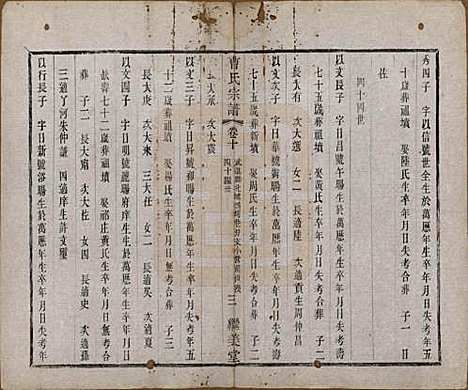 秀四子　字以信號世全生於萬歷年生卒年月日失考壽五
十歲葬祖墳　娶陸氏生卒年月日失考合葬　子一　日
佐
四十四世
以文長子　字日昌號午賜生於萬歷年生卒年月日失考壽
七十五歲葬祖墳　娶黃氏生卒年月日失考合葬　子二
長大有　次大選　女二　長適陸　次適貢生周仲昌
以文次子　字日華號黃賜生於萬歷年生卒年月日失考壽
七十五歲葬新墳　娶周氏生卒年月日失考合葬　子二
長大承　次大震
曹氏宗譜
卷十
四十四世
三
繼美堂
以文三子　字日明號龍賜生於萬歷年生卒年月日失考壽
十二歲葬祖墳　娶楊氏生卒年月日無考合葬　子三
長大庚　次大年　三大任　女二　長適吳　次適夏
以文四子　字日號賜府庠生生於萬歷年生卒年月日失考
壽七十二歲葬祖墳　娶祁庄黃氏生卒年月日無考合
葬　子二　長大　次大佐　女四　長適史　次適
三適丁河朱仲謙　四適庠生許文璽
以行長子　字日新號洛賜生於萬歷年生卒年月日失考